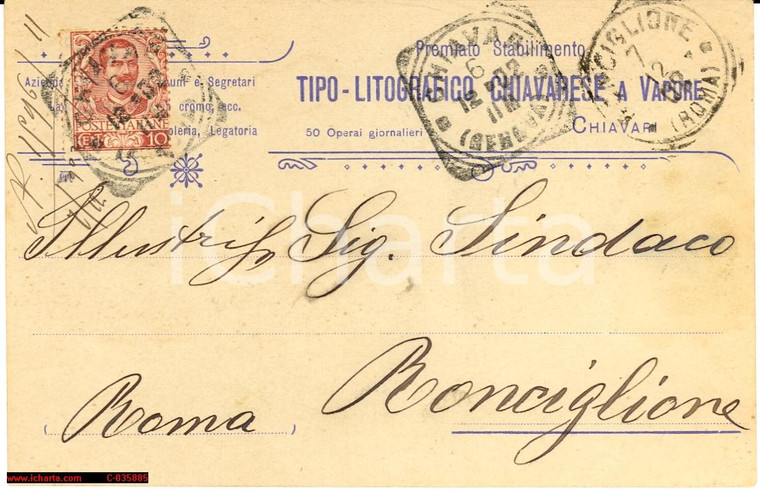 Premiato Stabilimento
TIPO-LITOGRAFICO CHIAVARESE A VAPORE
50 Operai giornalieri
CHIAVARI
Segretari
cromo, ecc.
Legatoria
POSTE ITALIANE
10
CHIAVARI
(GENOVA)
6
12
RONCIGLIONE
7
12
(ROMA)
Illustriss Sig. Sindaco
Roma
Ronciglione
iCharta
www.icharta.com C-035885